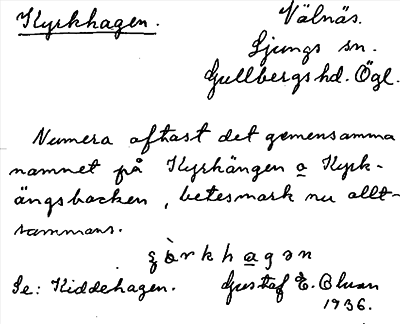 Kyrkhagen. Välnäs.
Ljungs sn.
Gullbergs hd. Ögl.
Numera oftast det gemensamma
namnet på Kyrkängen o Kyrk-
ängsbacken, betesmark nu allt-
sammans.
ȿò̀rkhagən
Se: Kiddehagen. Gustaf E. Bluan
1936.